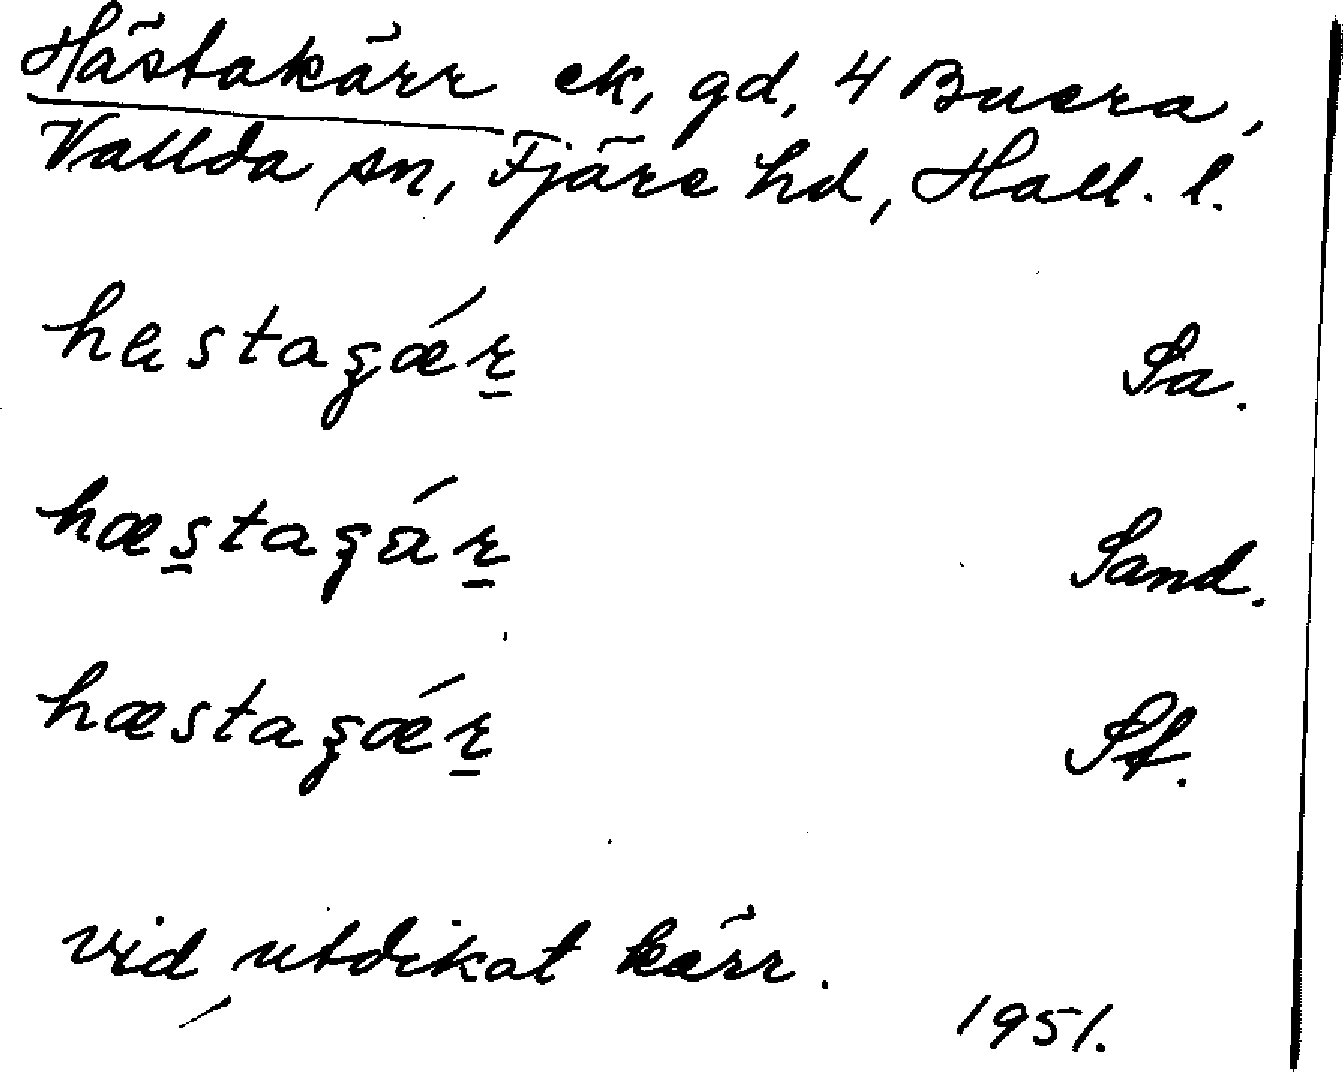 Hästakärr ek, gd, 4 Buera,
Vallda sn, Fjäre hd, Hall. l.
Sa.
hæs̲taʒár̲ Sand.
hæstaʒǽr̲ St.
vid utdikat kärr.
1951.